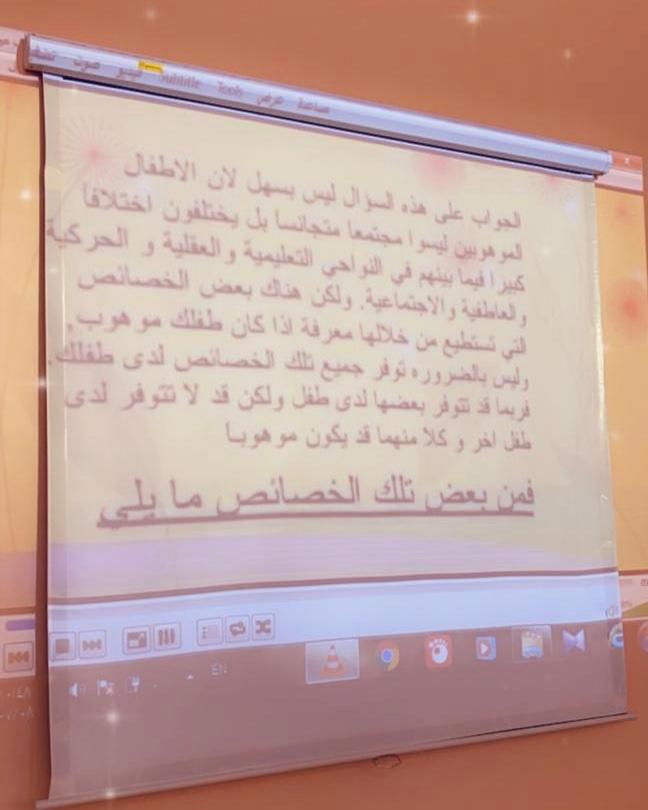 صوت
فيديو
Subtitle
Tools
عرض
مساعدة
الجواب على هذه السؤال ليس بسهل لان الاطفال
الموهوبين ليسوا مجتمعا متجانسا بل يختلفون اختلافا
كبيرا فيما بينهم في النواحي التعليمية والعقلية و الحركية
والعاطفية والاجتماعية. ولكن هناك بعض الخصائص
التي تستطيع من خلالها معرفة اذا كان طفلك موهوب,
وليس بالضروره توفر جميع تلك الخصائص لدى طفلك.
فربما قد تتوفر بعضها لدى طفل ولكن قد لا تتوفر لدى
طفل اخر و كلا منهما قد يكون موهوبا
فمن بعض تلك الخصائص ما يلي
EN